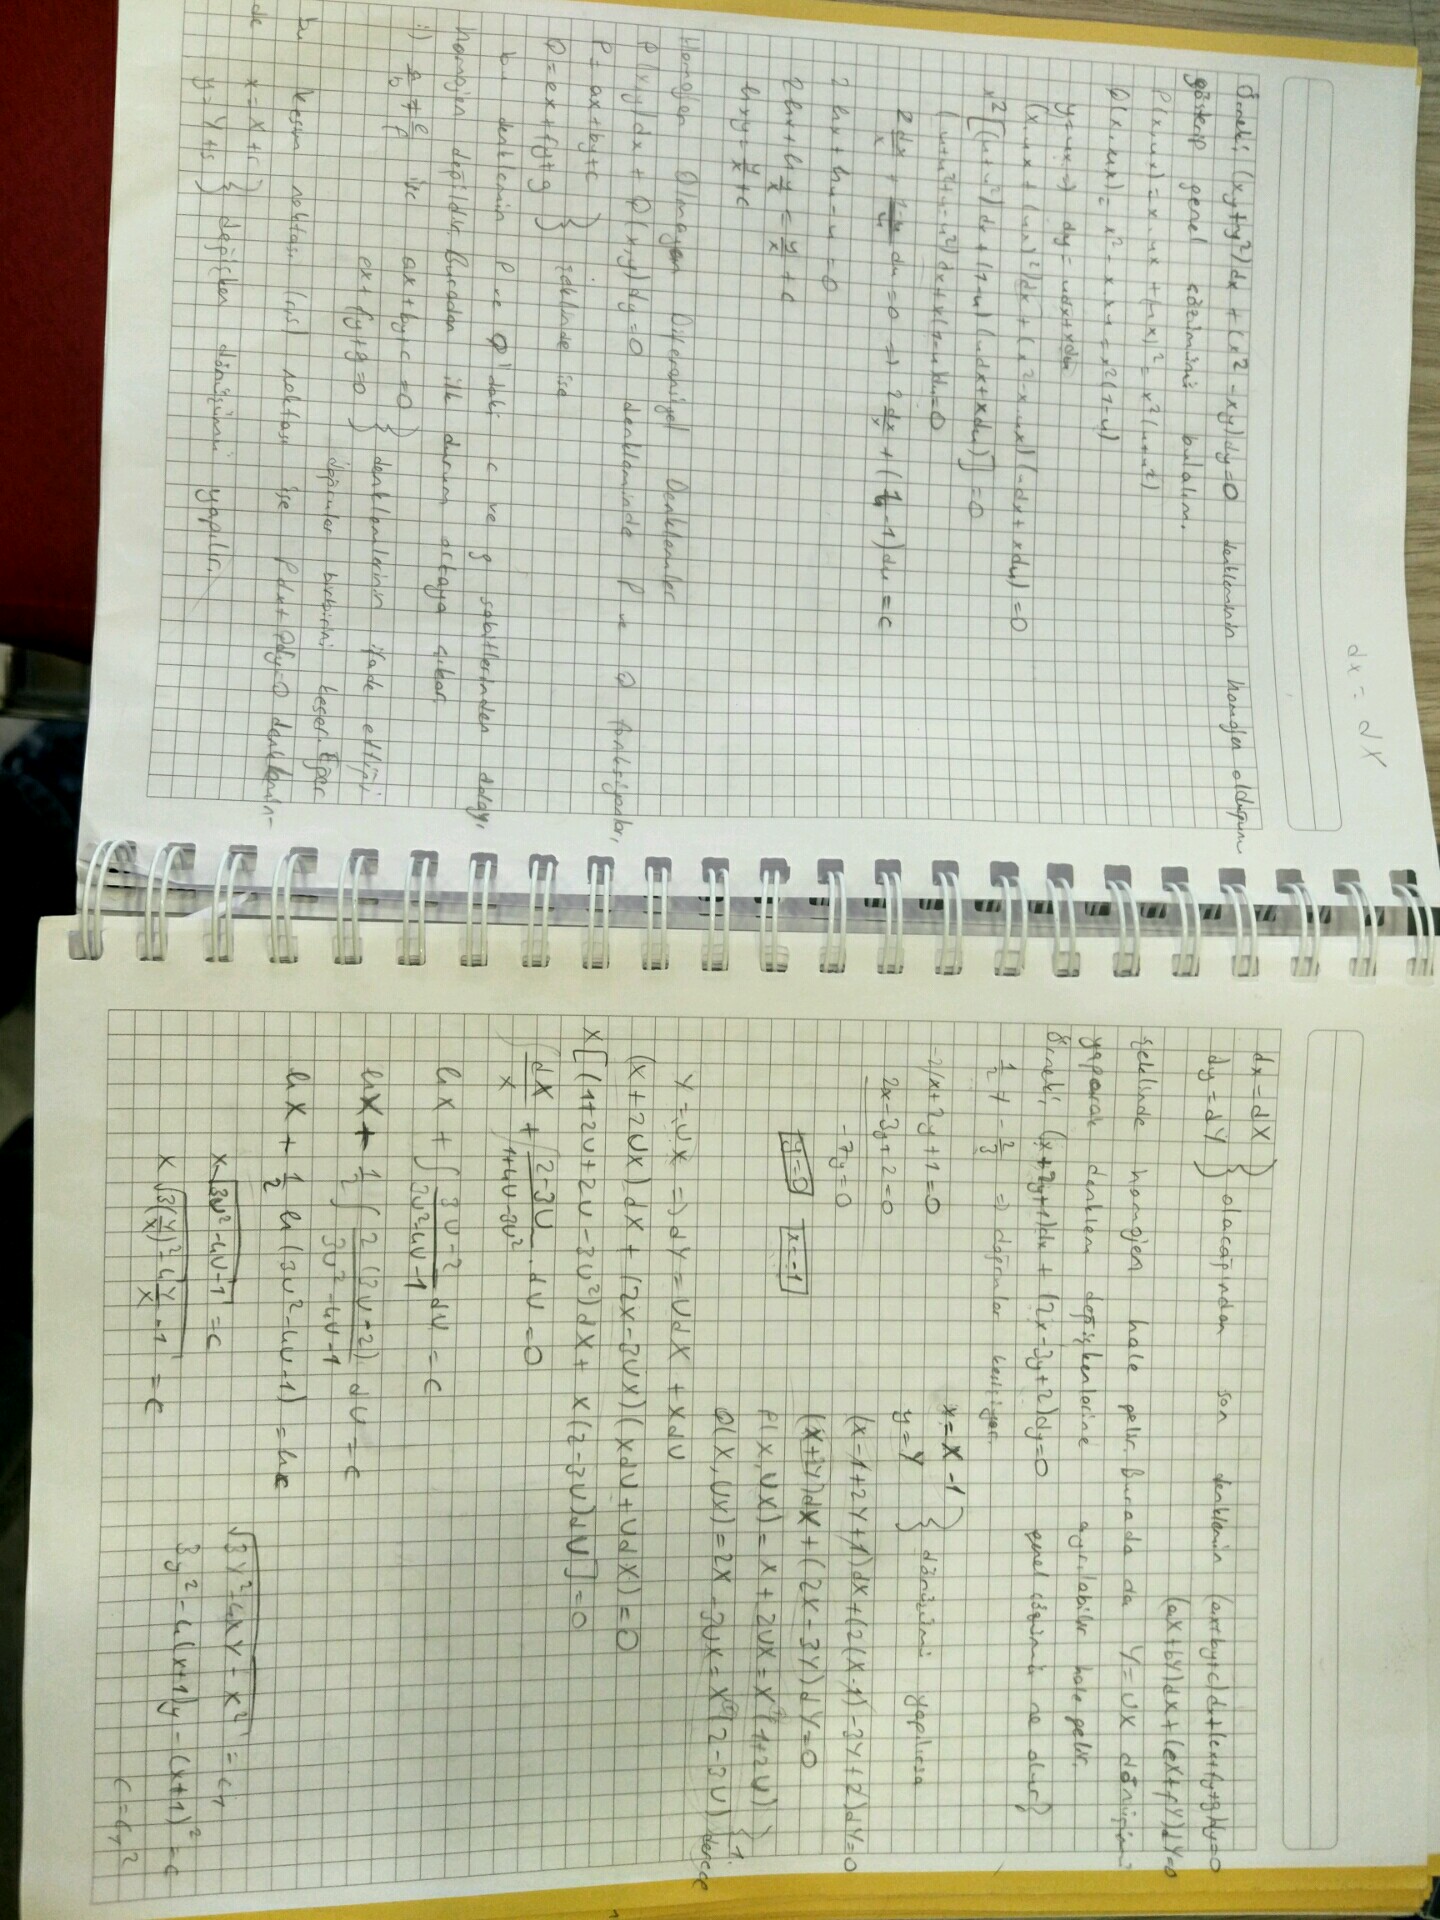 dx = dX
Örnek: (xy+y²)dx + (x² - xy)dy=0 denkleminin homojen olduğunu
gösterip genel çözümünü bulalım.
P(x,ux) = x.ux + (ux)² = x²(u+u²)
Q(x,ux) = x² - x.xu = x²(1-u)
y=ux => dy = udx+xdu
(x.ux + (ux)²)dx + (x²-x.ux)(udx + xdu) =0
x²[(u+u²)dx + (1-u)(udx+xdu)] =0
(u+u²+u-u²)dx+x(1-u)du=0
2 dx/x + (1-u)/u du =0 => 2 dx/x + (1/u -1)du = c
2 lnx + lnu - u =0
2 lnx + ln y/x = y/x + c
lnxy = y/x + c
Homojen Olmayan Diferensiyel Denklemler
P(x,y)dx + Q(x,y)dy=0 denkleminde P ve Q fonksiyonları
P= ax+by+c
Q=ex+fy+g } şeklinde ise
bu denklemin P ve Q'daki c ve g sabitlerinden dolayı
homojen değildir. Buradan ilk durum ortaya çıkar.
i) a/b ≠ e/f ise ax+by+c=0
ex+fy+g=0 } denklemlerinin ifade ettiği
doğrular birbirini keser. Eğer
bu kesim noktası (r,s) noktası ise Pdx+Qdy=0 denklemin-
de x = X+r
y = Y+s } değişken dönüşümü yapılır.
dx = dX
dy = dY } olacağından son denklemin (ax+by+c)dx+(ex+fy+g)dy=0
(aX+bY)dX+(eX+fY)dY=0
şeklinde homojen hale gelir. Burada da Y=UX dönüşümü
yaparak denklem değişkenlerine ayrılabilir hale gelir.
Örnek: (x+2y+1)dx + (2x-3y+2)dy=0 genel çözümü ne olur?
1/2 ≠ -2/3 => doğrular kesişiyor.
-2/x+2y+1=0
2x-3y+2=0
-7y=0
y=0 x=-1
x=X-1
y=Y } dönüşümü yapılırsa
(X-1+2Y+1)dX+(2(X-1)-3Y+2)dY=0
(X+2Y)dX+(2X-3Y)dY=0
P(X,UX) = X + 2UX = X¹(1+2U)
Q(X,UX) = 2X - 3UX = X¹(2-3U) } 1. derece
Y=UX => dY = UdX + XdU
(X+2UX)dX + (2X-3UX)(XdU+UdX) =0
X[(1+2U+2U-3U²)dX + X(2-3U)dU] =0
∫ dX/X + ∫ (2-3U)/(1+4U-3U²) . dU =0
lnX + ∫ (3U-2)/(3U²-4U-1) dU = c
lnX + 1/2 ∫ 2(3U-2)/(3U²-4U-1) dU = c
lnX + 1/2 ln(3U²-4U-1) = lnc
X√(3U²-4U-1) = c
X√(3(Y/X)²-4 Y/X -1) = c
√(3Y²-4XY-X²) = c₁
3y²-4(x+1)y-(x+1)² = c
c = c₁²